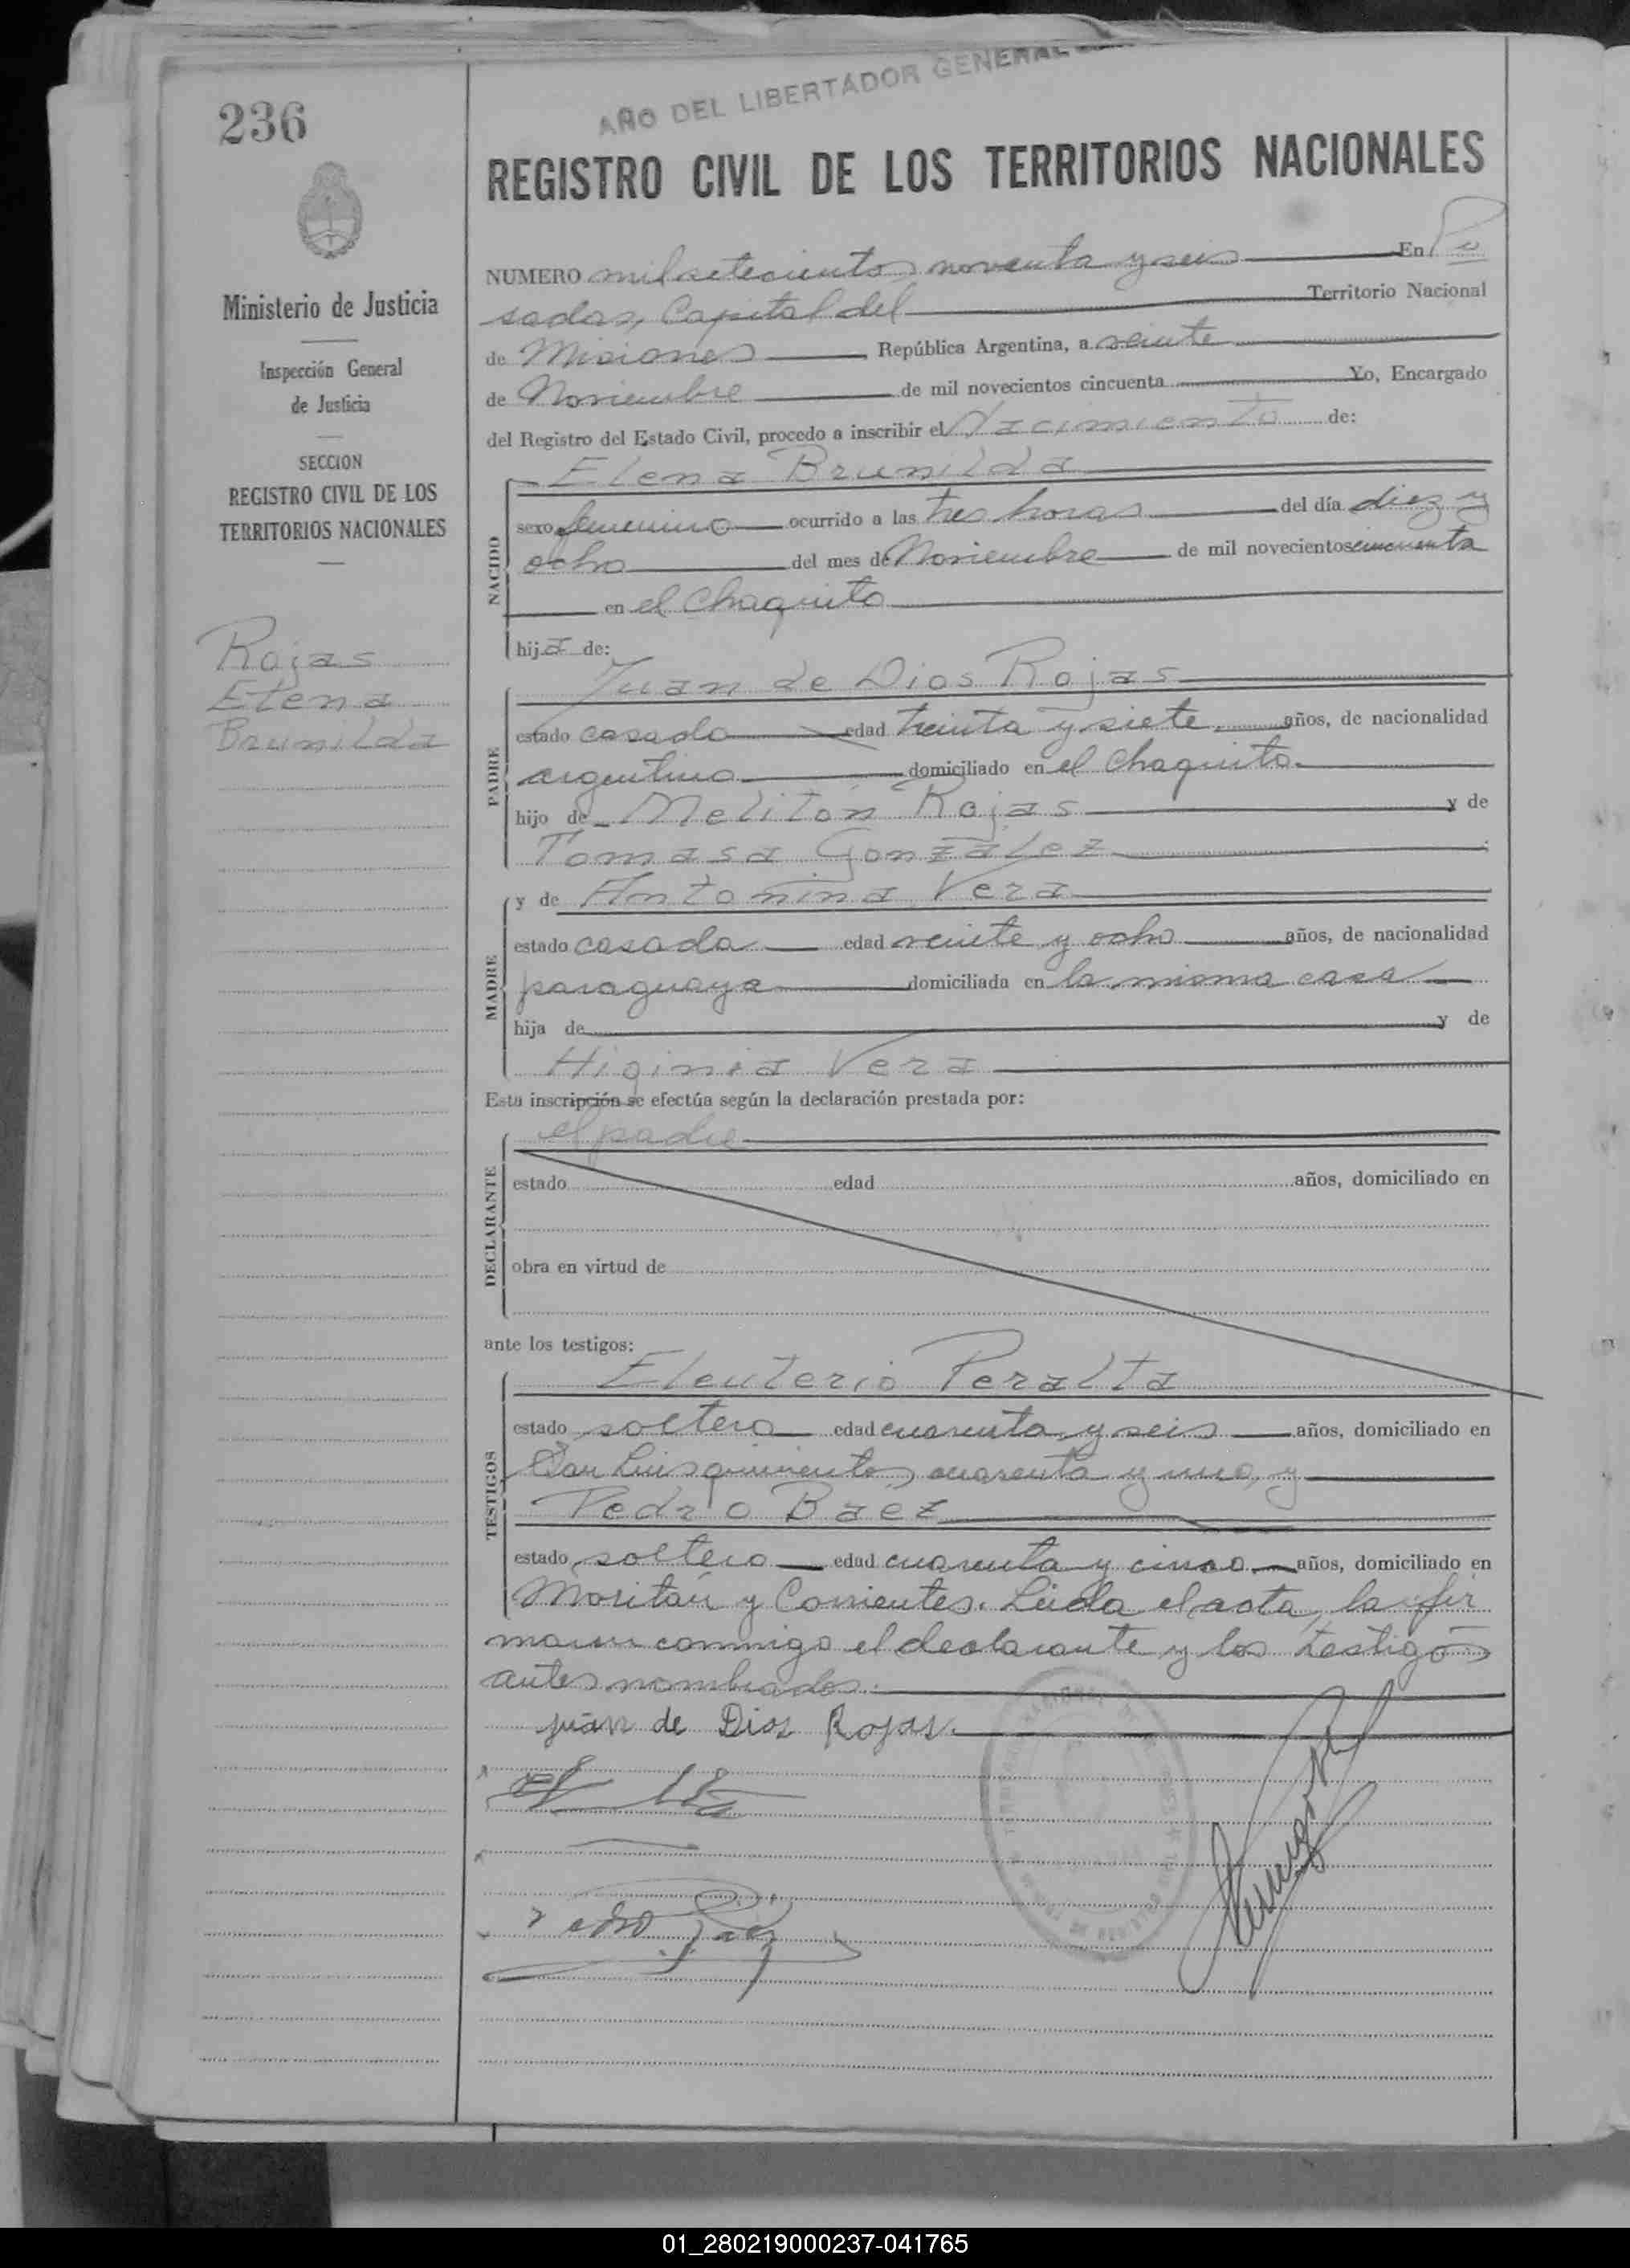 AÑO DEL LIBERTADOR GENERAL
236
REGISTRO CIVIL DE LOS TERRITORIOS NACIONALES
Ministerio de Justicia
Inspección General
de Justicia
SECCION
REGISTRO CIVIL DE LOS
TERRITORIOS NACIONALES
Rojas
Elena
Brunilda
NUMERO mil setecientos noventa y seis En Po
sadas, Capital del Territorio Nacional
de Misiones República Argentina, a veinte
de Noviembre de mil novecientos cincuenta Yo, Encargado
del Registro del Estado Civil, procedo a inscribir el Nacimiento de:
Elena Brunilda
NACIDO
sexo femenino ocurrido a las tres horas del día diez y
ocho del mes de Noviembre de mil novecientos cincuenta
en el Chaquito
hija de:
Juan de Dios Rojas
PADRE
estado casado edad treinta y siete años, de nacionalidad
argentino domiciliado en el Chaquito
hijo de Melitón Rojas y de
Tomasa González
y de Antonina Vera
MADRE
estado casada edad veinte y ocho años, de nacionalidad
paraguaya domiciliada en la misma casa
hija de y de
Higinia Vera
Esta inscripción se efectúa según la declaración prestada por:
el padre
DECLARANTE
estado edad años, domiciliado en
obra en virtud de
ante los testigos:
Eleuterio Peralta
TESTIGOS
estado soltero edad cuarenta y seis años, domiciliado en
San Luis quinientos cuarenta y uno, y
Pedro Baez
estado soltero edad cuarenta y cinco años, domiciliado en
y Corrientes. Leída el acta, la fir
maron conmigo el declarante y los testigos
antes nombrados.
Juan de Dios Rojas.
Pedro Baez
01_280219000237-041765